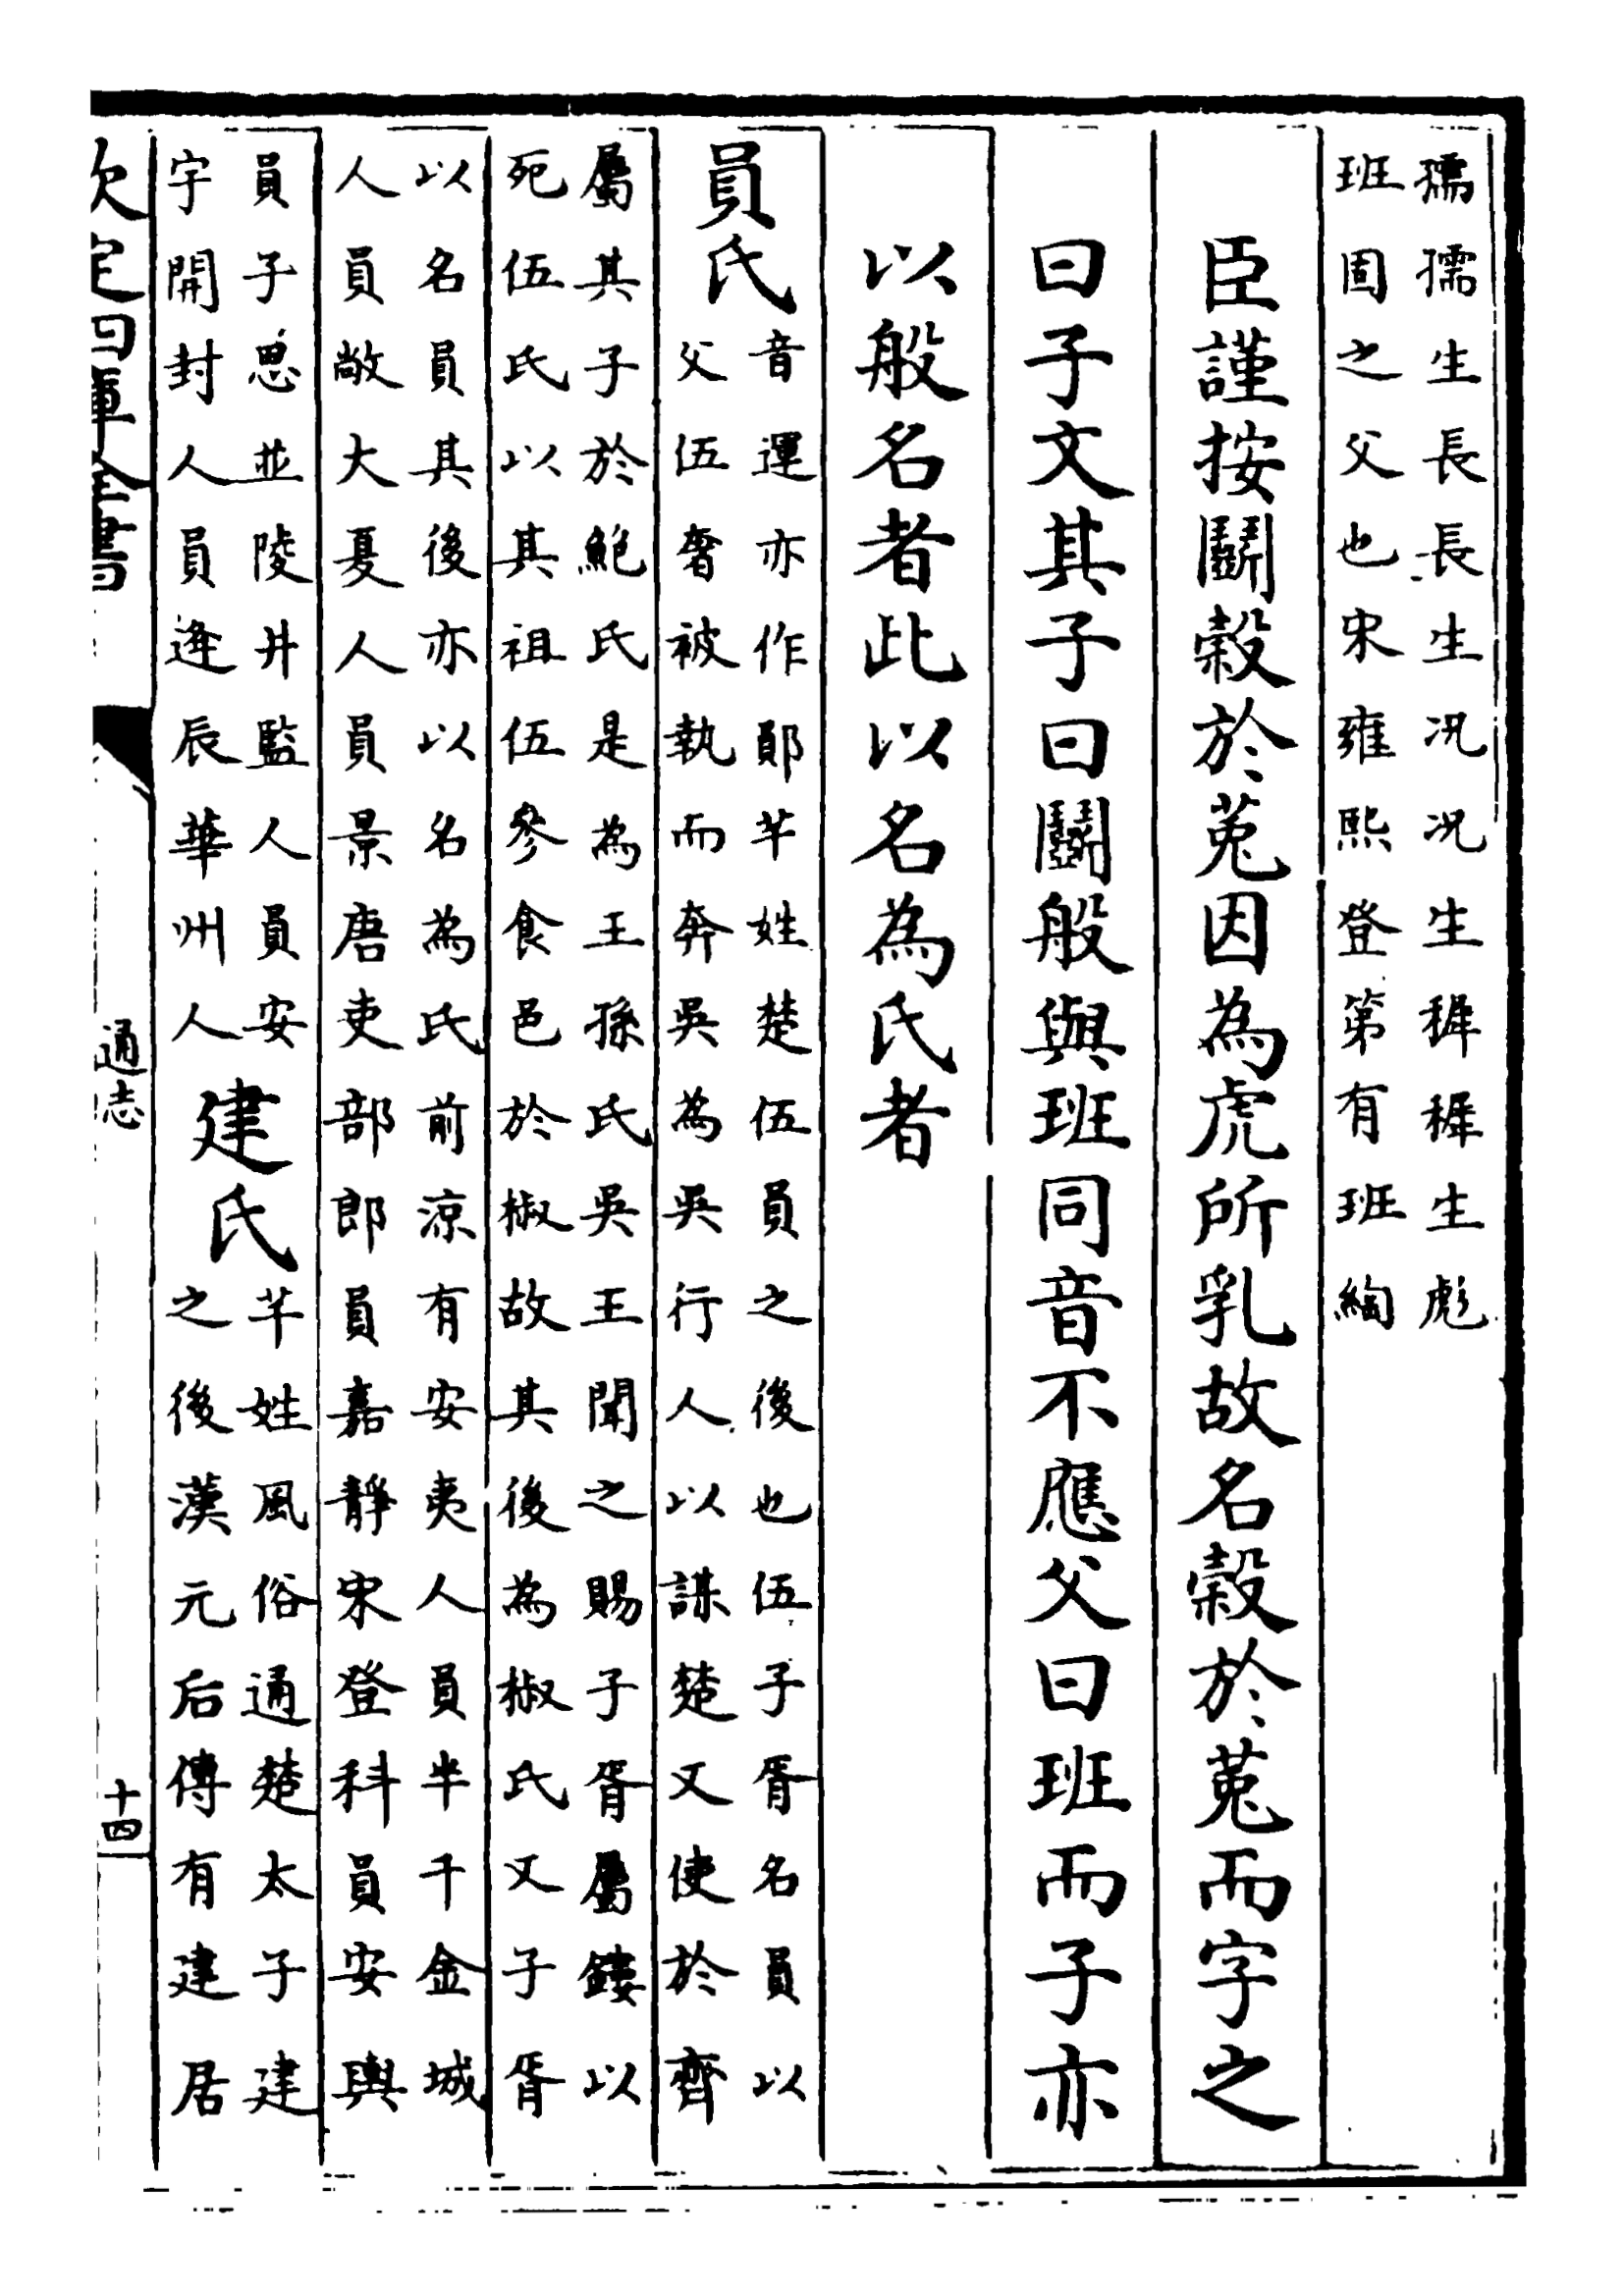 孺孺生長長生况况生穉穉生彪
班固之父也宋雍熙登第有班絢
臣謹按鬭穀於菟因為虎所乳故名穀於菟而字之
曰子文其子曰鬭般與班同音不應父曰班而子亦
以般名者此以名為氏者
員氏
音運亦作鄖芊姓楚伍員之後也伍子胥名員以
父伍奢被執而奔吳為吳行人以謀楚又使於齊
屬其子於鮑氏是為王孫氏吳王聞之賜子胥屬鏤以
死伍氏以其祖伍參食邑於椒故其後為椒氏又子胥
以名員其後亦以名為氏前涼有安夷人員半千金城
人員敞大夏人員景唐吏部郎員嘉靜宋登科員安輿
員子思並陵井監人員安
宇開封人員逄辰華州人
建氏
芊姓風俗通楚太子建
之後漢元后傳有建居
欽定四庫全書
通志
十四